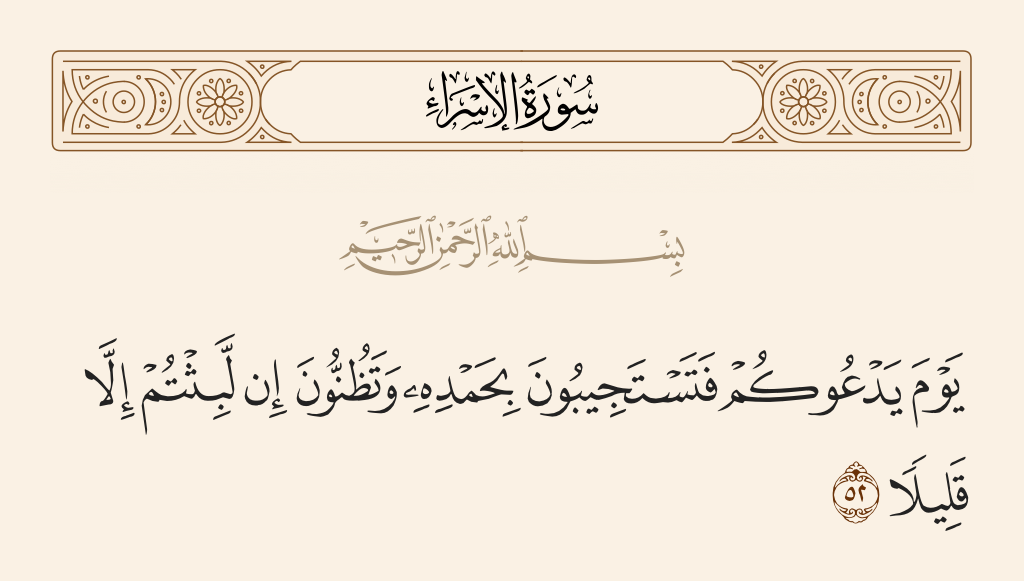 سُورَةُ الإِسْرَاءِ
بِسْمِ ٱللَّهِ ٱلرَّحْمَٰنِ ٱلرَّحِيمِ
يَوْمَ يَدْعُوكُمْ فَتَسْتَجِيبُونَ بِحَمْدِهِۦ وَتَظُنُّونَ إِن لَّبِثْتُمْ إِلَّا
قَلِيلًا ٥٢